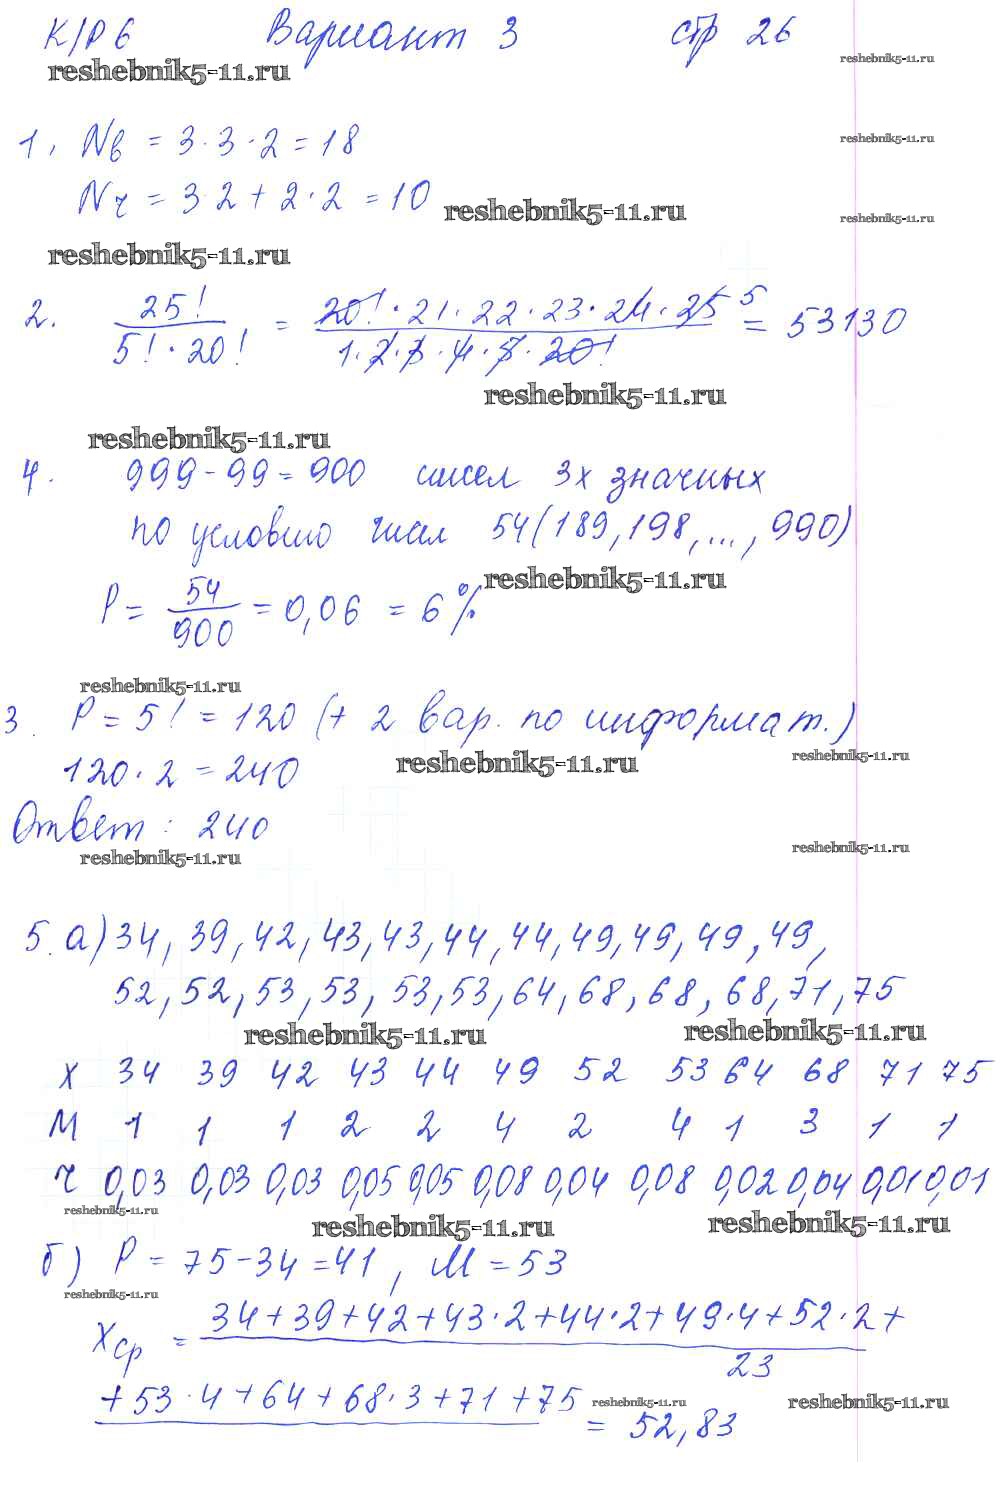 К/Р 6 Вариант 3 стр 26
reshebnik5-11.ru
reshebnik5-11.ru
1. Nв = 3·3·2 = 18
reshebnik5-11.ru
Nч = 3·2 + 2·2 = 10
reshebnik5-11.ru
reshebnik5-11.ru
reshebnik5-11.ru
2. 25! / 5!·20! = 20!·21·22·23·24·25 5 / 1·2·3·4·5·20! = 53130
reshebnik5-11.ru
reshebnik5-11.ru
4. 999-99=900 чисел 3х значных
по условию чисел 54(189,198,...,990)
reshebnik5-11.ru
P = 54/900 = 0,06 = 6%
reshebnik5-11.ru
3. P = 5! = 120 (+ 2 вар. по информат.)
reshebnik5-11.ru
reshebnik5-11.ru
120·2 = 240
Ответ: 240
reshebnik5-11.ru
reshebnik5-11.ru
5. а) 34, 39, 42, 43, 43, 44, 44, 49, 49, 49, 49,
52, 52, 53, 53, 53, 53, 64, 68, 68, 68, 71, 75
reshebnik5-11.ru
reshebnik5-11.ru
X 34 39 42 43 44 49 52 53 64 68 71 75
M 1 1 1 2 2 4 2 4 1 3 1 1
ч 0,03 0,03 0,03 0,05 0,05 0,08 0,04 0,08 0,02 0,04 0,01 0,01
reshebnik5-11.ru
reshebnik5-11.ru
reshebnik5-11.ru
б) P = 75-34=41, M = 53
reshebnik5-11.ru
Xср = 34+39+42+43·2+44·2+49·4+52·2+
23
+53·4+64+68·3+71+75 = 52,83
reshebnik5-11.ru
reshebnik5-11.ru